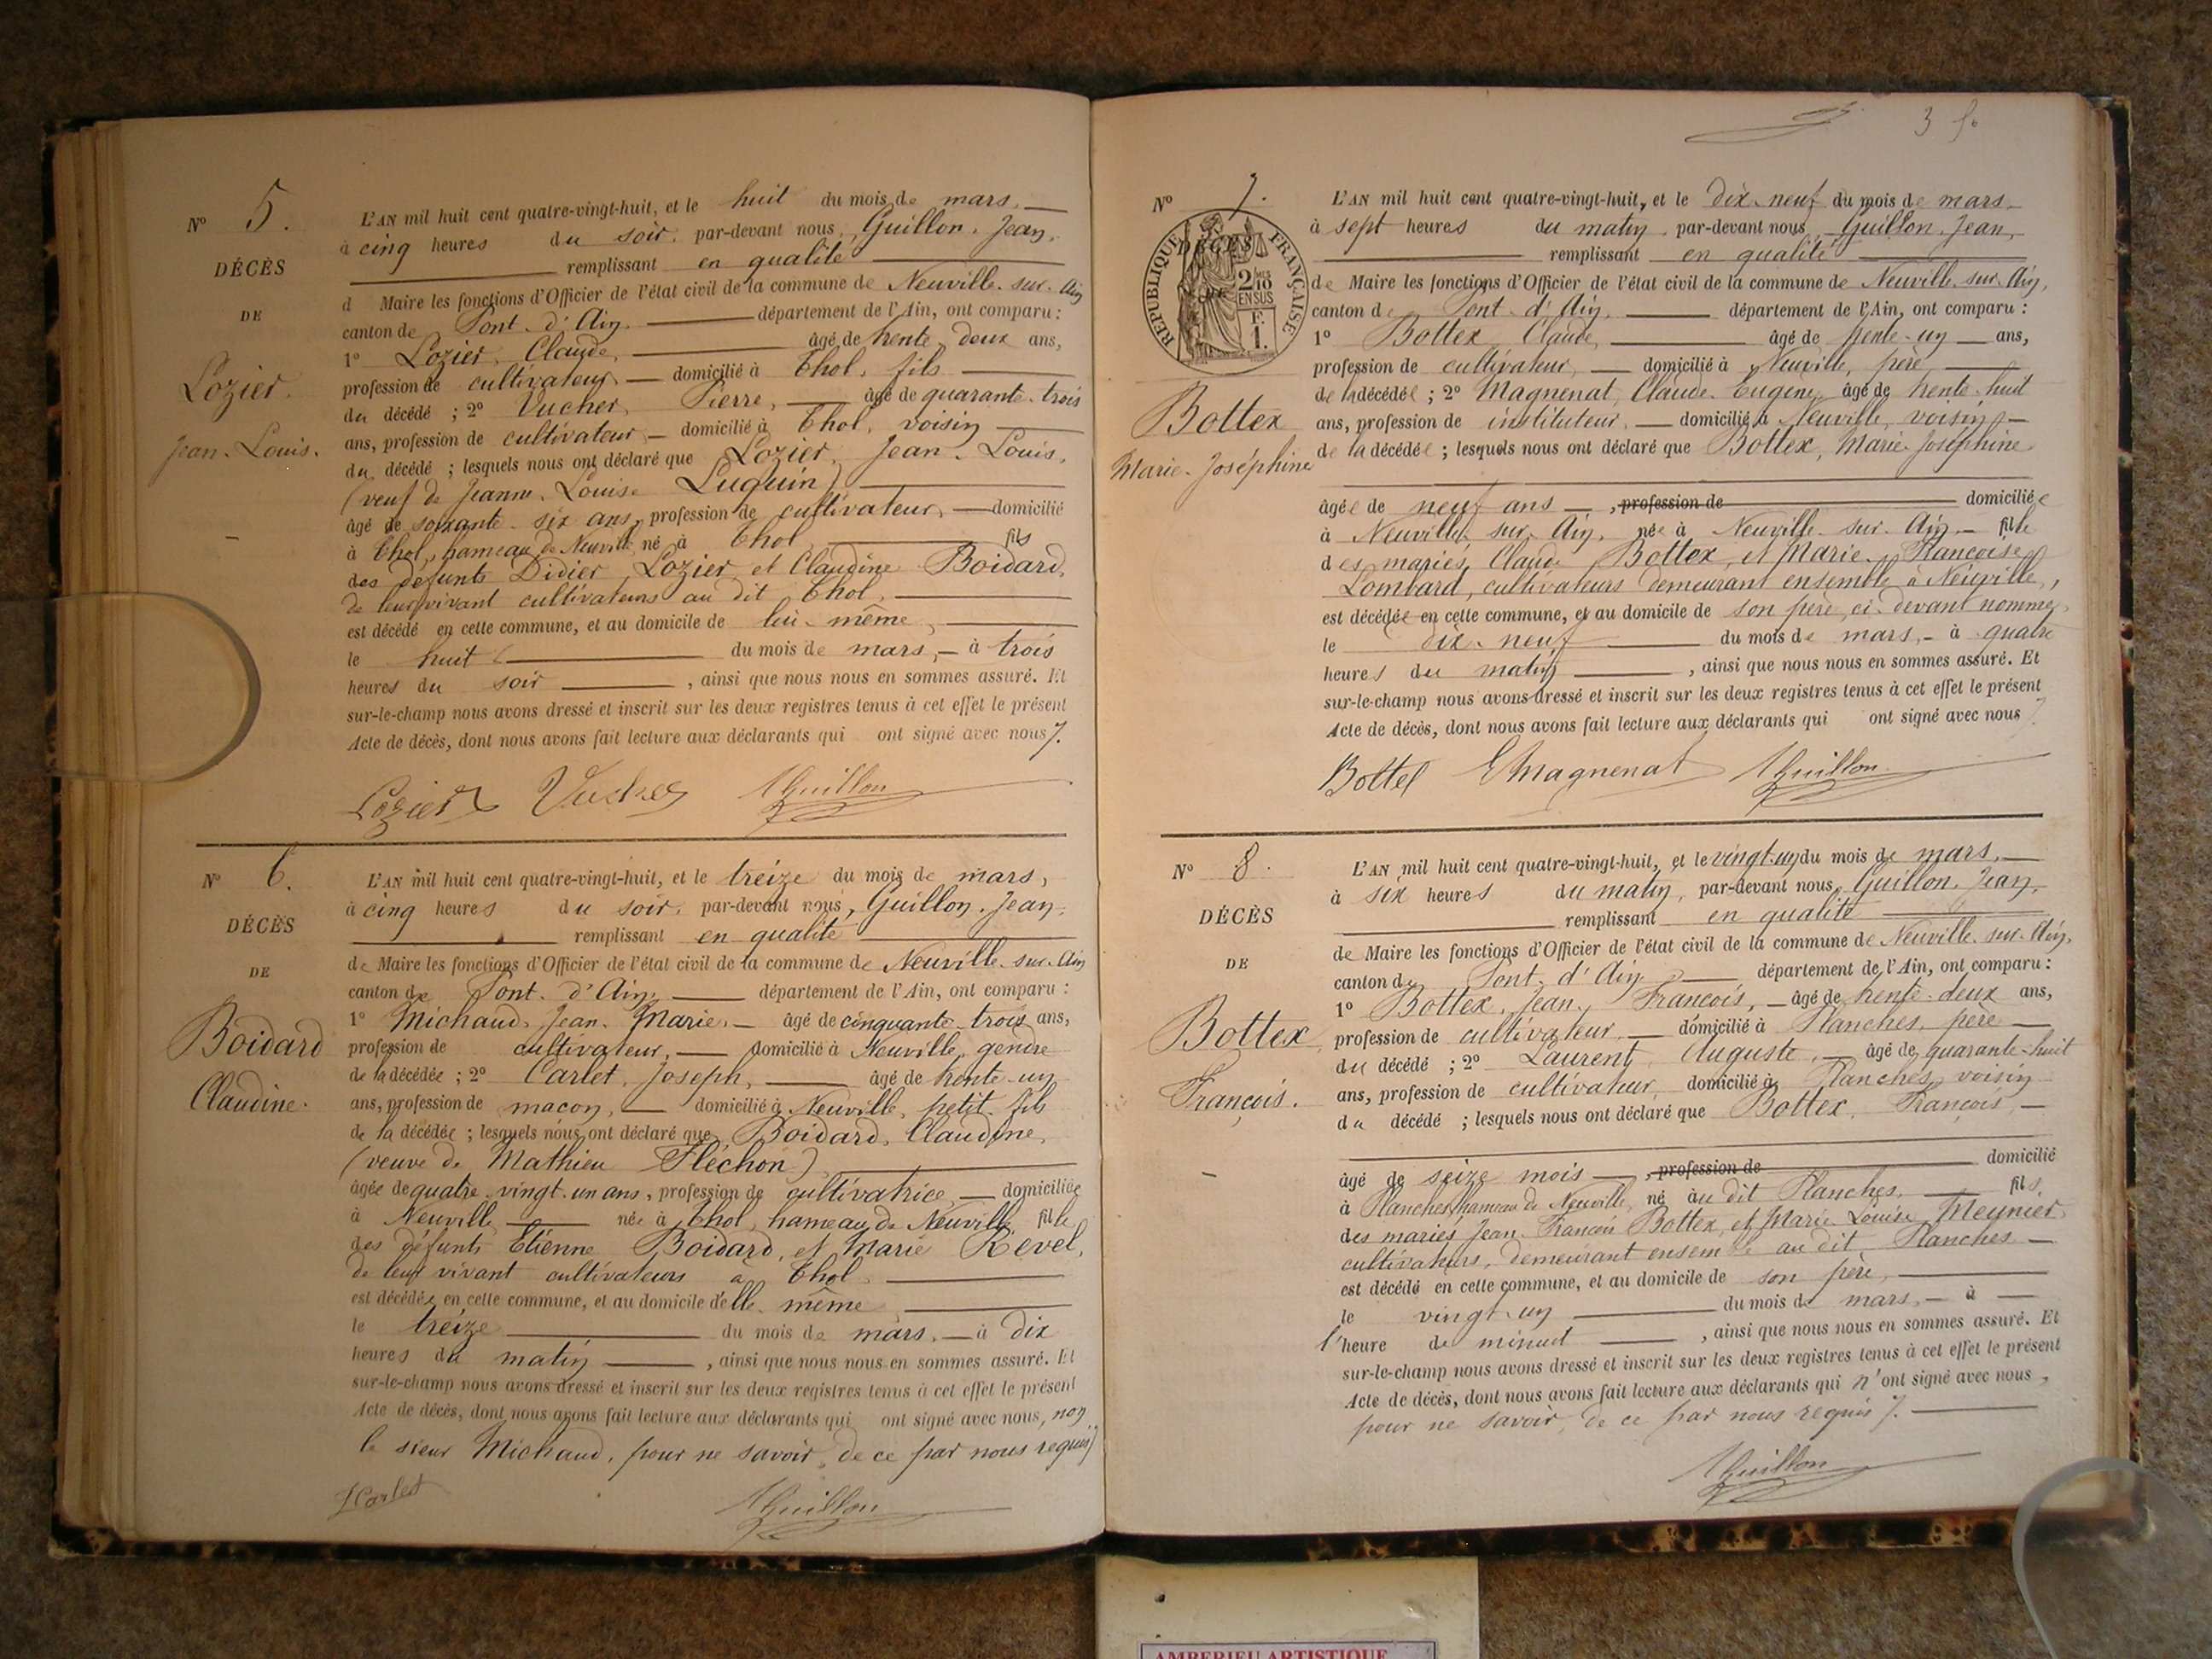 Nº 5.
DÉCÈS
DE
Lozier.
Jean-Louis.
L'AN mil huit cent quatre-vingt-huit, et le huit du mois de mars,
à cinq heures du soir, par-devant nous, Guillon, Jean,
remplissant en qualité
d Maire les fonctions d'Officier de l'état civil de la commune de Neuville-sur-Ain
canton de Pont-d'Ain, département de l'Ain, ont comparu :
1º Lozier, Claude, âgé de trente-deux ans,
profession de cultivateur, domicilié à Thol, fils
du décédé ; 2º Vucher, Pierre, âgé de quarante-trois
ans, profession de cultivateur, domicilié à Thol, voisin
du décédé ; lesquels nous ont déclaré que Lozier, Jean-Louis,
(veuf de Jeanne-Louise Luquin)
âgé de soixante-six ans, profession de cultivateur, domicilié
à Thol, hameau de Neuville, né à Thol, fils
des défunts Didier Lozier et Claudine Boidard,
de leur vivant cultivateurs au dit Thol,
est décédé en cette commune, et au domicile de lui-même,
le huit du mois de mars, à trois
heures du soir, ainsi que nous nous en sommes assuré. Et
sur-le-champ nous avons dressé et inscrit sur les deux registres tenus à cet effet le présent
Acte de décès, dont nous avons fait lecture aux déclarants qui ont signé avec nous
Lozier Vucher Guillon
Nº 6.
DÉCÈS
DE
Boidard
Claudine.
L'AN mil huit cent quatre-vingt-huit, et le treize du mois de mars,
à cinq heures du soir, par-devant nous, Guillon, Jean,
remplissant en qualité
de Maire les fonctions d'Officier de l'état civil de la commune de Neuville-sur-Ain
canton de Pont-d'Ain, département de l'Ain, ont comparu :
1º Michaud, Jean-Marie, âgé de cinquante-trois ans,
profession de cultivateur, domicilié à Neuville, gendre
de la décédée ; 2º Carlet, Joseph, âgé de trente-un
ans, profession de maçon, domicilié à Neuville, petit-fils
de la décédée ; lesquels nous ont déclaré que Boidard, Claudine,
(veuve de Mathieu Fléchon)
âgée de quatre-vingt-un ans, profession de cultivatrice, domiciliée
à Neuville née à Thol, hameau de Neuville, fille
des défunts Etienne Boidard, et Marie Revel,
de leur vivant cultivateurs à Thol,
est décédée en cette commune, et au domicile d'elle-même
le treize du mois de mars, à dix
heures du matin, ainsi que nous nous en sommes assuré. Et
sur-le-champ nous avons dressé et inscrit sur les deux registres tenus à cet effet le présent
Acte de décès, dont nous avons fait lecture aux déclarants qui ont signé avec nous, non
le sieur Michaud, pour ne savoir, de ce par nous requis
JCarlet Guillon
3
Nº 7.
DÉCÈS
RÉPUBLIQUE FRANÇAISE
2/10 EN SUS
F. 1.
Bottex
Marie-Joséphine
L'AN mil huit cent quatre-vingt-huit, et le dix-neuf du mois de mars
à sept heures du matin, par-devant nous, Guillon, Jean,
remplissant en qualité
de Maire les fonctions d'Officier de l'état civil de la commune de Neuville-sur-Ain,
canton de Pont-d'Ain, département de l'Ain, ont comparu :
1º Bottex, Claude, âgé de trente-un ans,
profession de cultivateur, domicilié à Neuville, père
de la décédée ; 2º Magnenat, Claude-Eugène, âgé de trente-huit
ans, profession de instituteur, domicilié à Neuville, voisin
de la décédée ; lesquels nous ont déclaré que Bottex, Marie-Joséphine
âgée de neuf ans, profession de domiciliée
à Neuville-sur-Ain, née à Neuville-sur-Ain, fille
des mariés Claude Bottex, et Marie-Françoise
Lombard, cultivateurs demeurant ensemble à Neuville,
est décédée en cette commune, et au domicile de son père, ci-devant nommé,
le dix-neuf du mois de mars, à quatre
heures du matin, ainsi que nous nous en sommes assuré. Et
sur-le-champ nous avons dressé et inscrit sur les deux registres tenus à cet effet le présent
Acte de décès, dont nous avons fait lecture aux déclarants qui ont signé avec nous
Bottex EMagnenat Guillon
Nº 8.
DÉCÈS
DE
Bottex
François.
L'AN mil huit cent quatre-vingt-huit, et le vingt-un du mois de mars,
à six heures du matin, par-devant nous, Guillon, Jean,
remplissant en qualité
de Maire les fonctions d'Officier de l'état civil de la commune de Neuville-sur-Ain,
canton de Pont-d'Ain département de l'Ain, ont comparu :
1º Bottex, Jean-François, âgé de trente-deux ans,
profession de cultivateur, domicilié à Planches, père
du décédé ; 2º Laurent, Auguste, âgé de quarante-huit
ans, profession de cultivateur, domicilié à Planches, voisin
du décédé ; lesquels nous ont déclaré que Bottex, François,
âgé de seize mois, profession de domicilié
à Planches, hameau de Neuville, né au dit Planches, fils
des mariés Jean-François Bottex, et Marie-Louise Meunier
cultivateurs, demeurant ensemble au dit Planches
est décédé en cette commune, et au domicile de son père,
le vingt-un du mois de mars, à
l'heure de minuit, ainsi que nous nous en sommes assuré. Et
sur-le-champ nous avons dressé et inscrit sur les deux registres tenus à cet effet le présent
Acte de décès, dont nous avons fait lecture aux déclarants qui n'ont signé avec nous,
pour ne savoir, de ce par nous requis
Guillon
AMBERIEU ARTISTIQUE